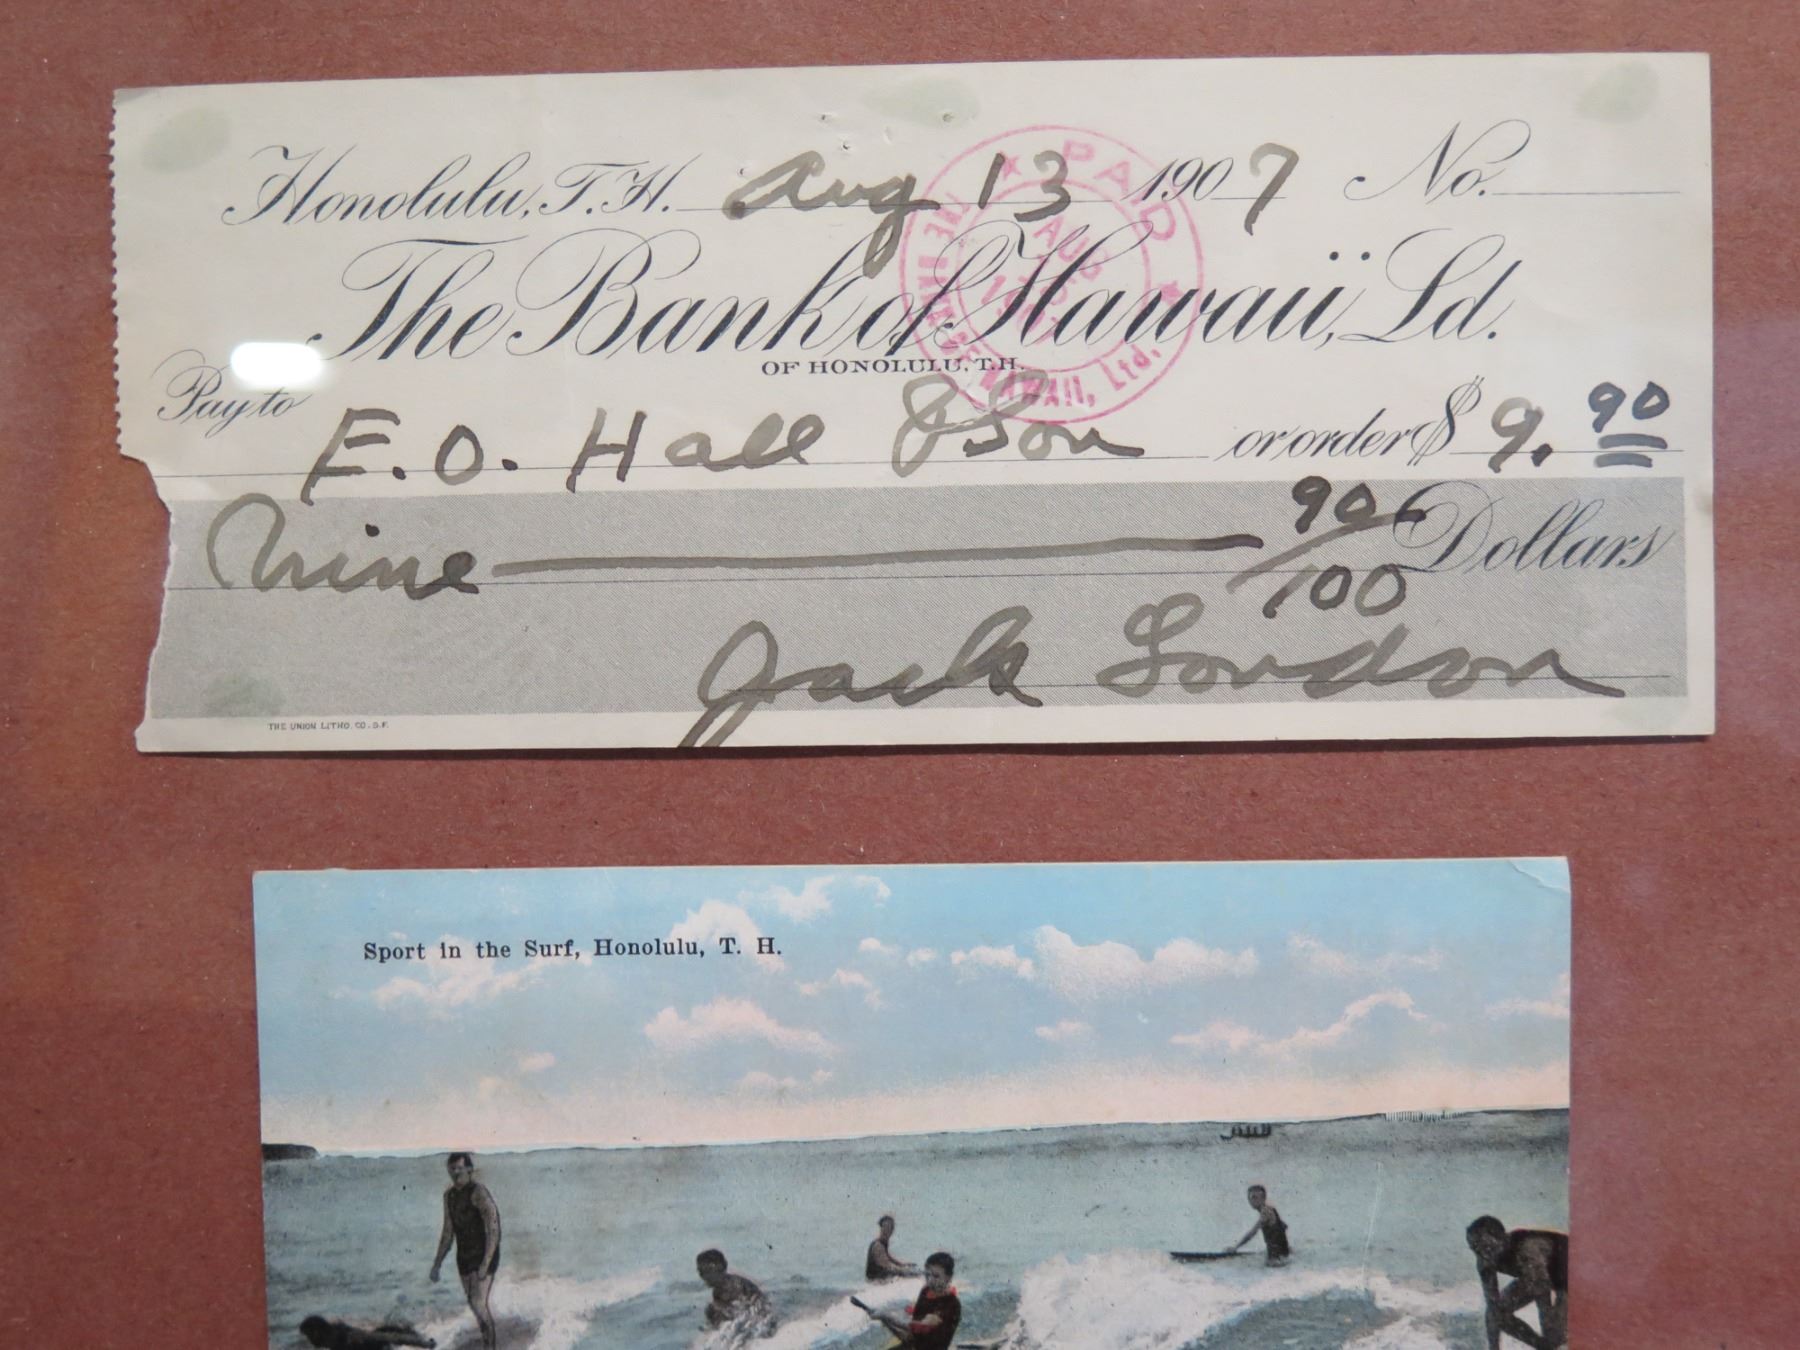 Honolulu, T.H. Aug 13 1907 No.
The Bank of Hawaii, Ld.
OF HONOLULU, T.H.
Pay to E. O. Hall & Son or order $ 9. 90
Nine 90/100 Dollars
Jack London
THE UNION LITHO. CO. S.F.
★ PAID ★
AUG
THE BANK OF HAWAII, Ltd.
Sport in the Surf, Honolulu, T. H.